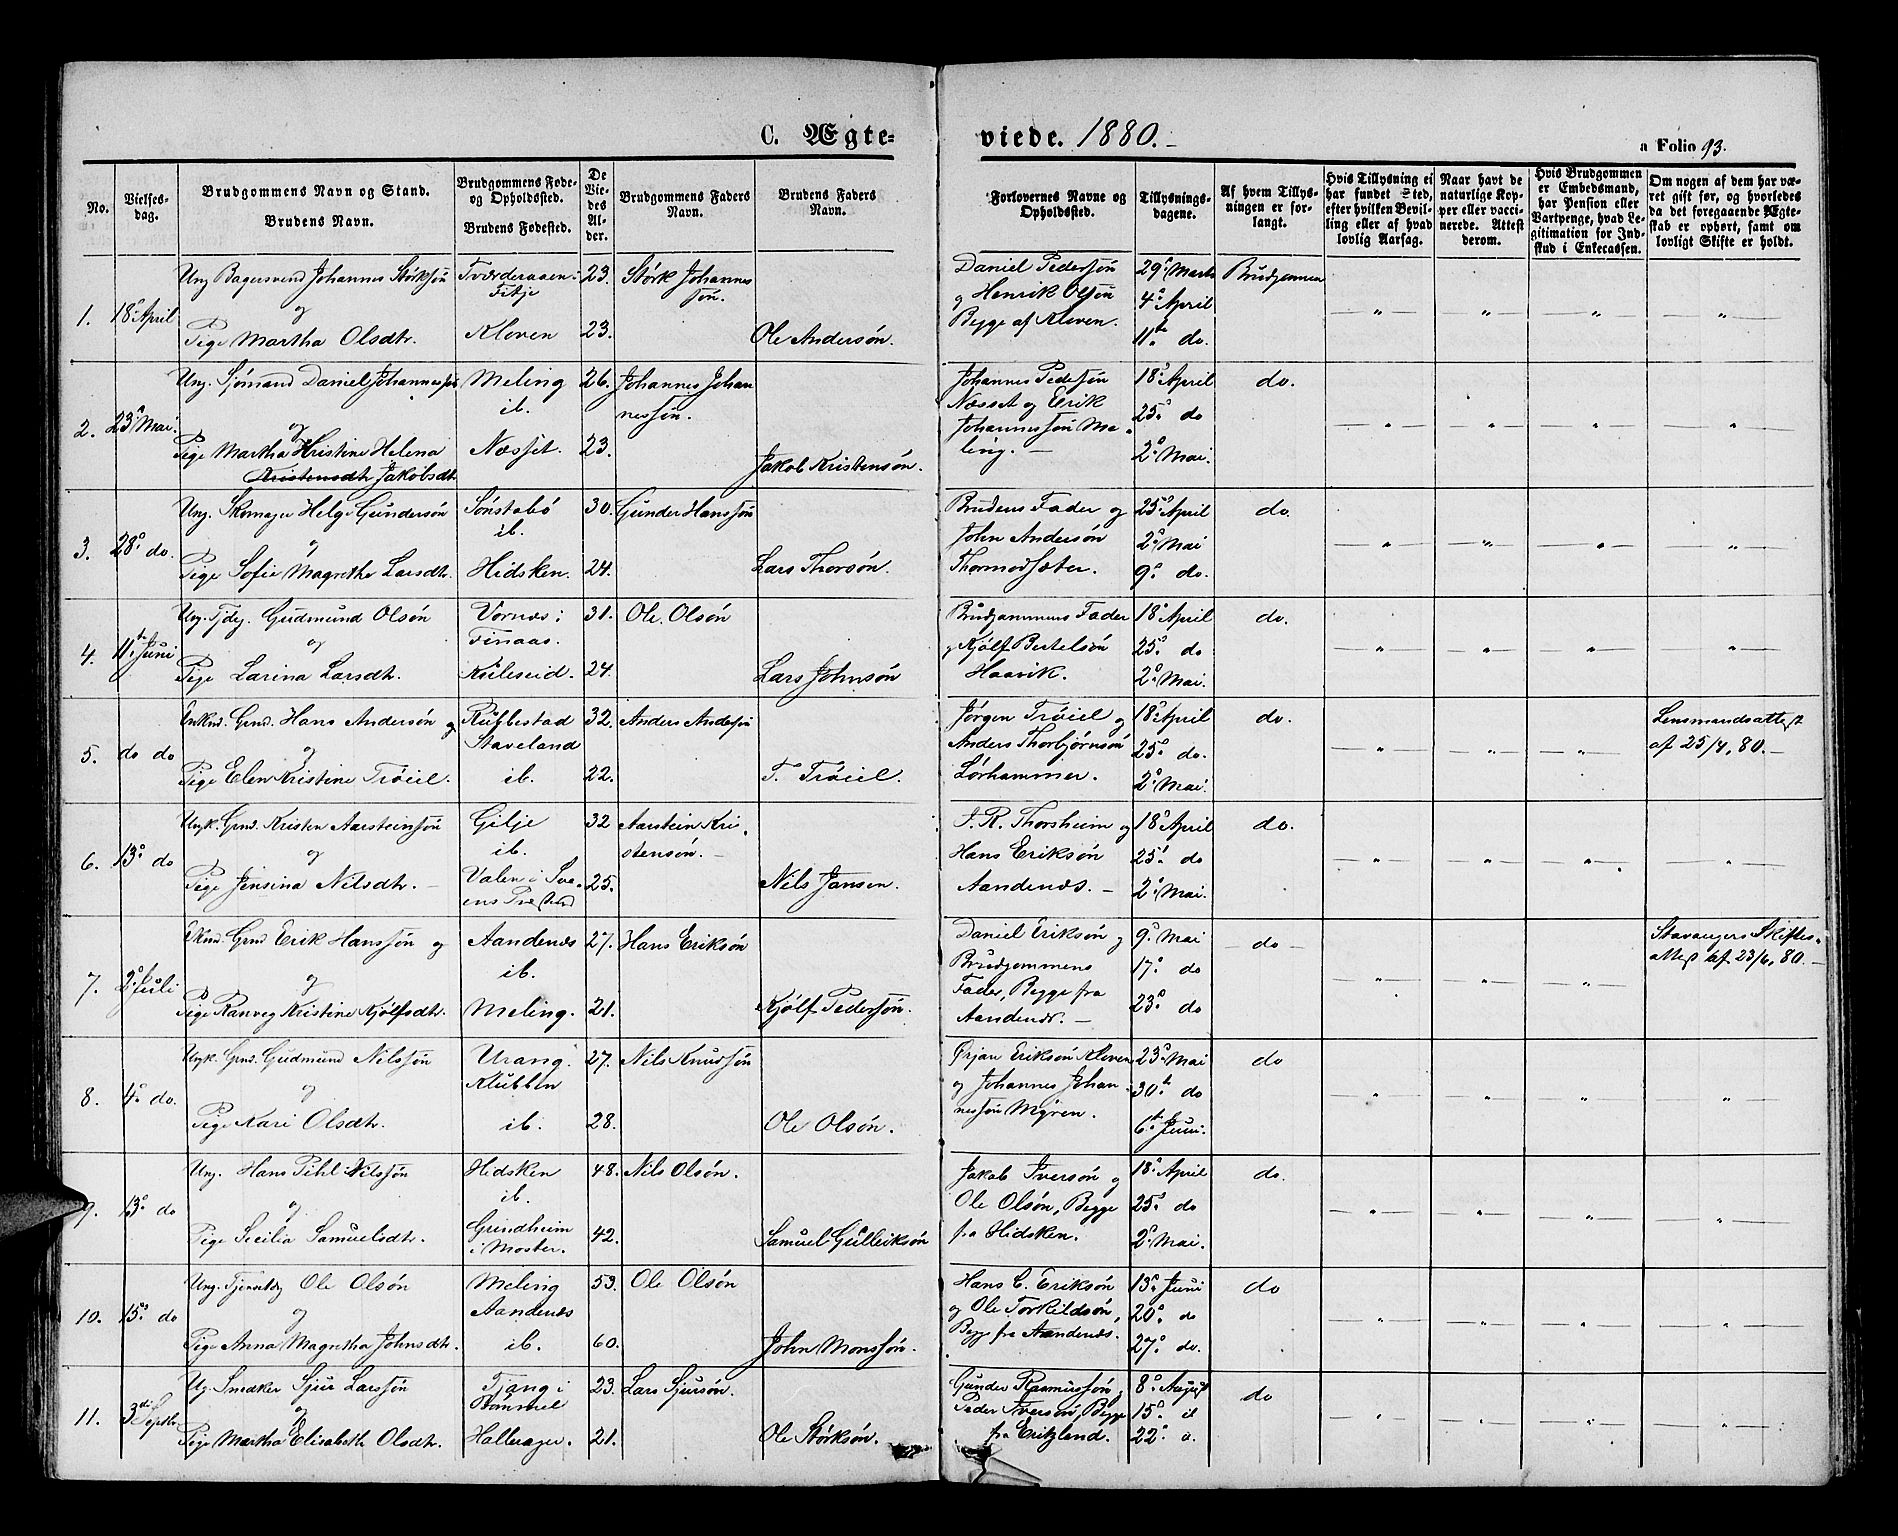 C. Ægte-
viede. 1880.-
a Folio 93.
No.
Vielses-
dag.
Brudgommens Navn og Stand.
Brudens Navn.
Brudgommens Føde-
og Opholdssted.
Brudens Fødested.
De
Vie-
des
Al-
der.
Brudgommens Faders
Navn.
Brudens Faders
Navn.
Forlovernes Navne og
Opholdssted.
Tillysnings-
dagene.
Af hvem Tillys-
ningen er for-
langt.
Hvis Tillysning ei
har fundet Sted,
efter hvilken Bevil-
ling eller af hvad
lovlig Aarsag.
Naar havt de
naturlige Kop-
per eller vacci-
nerede. Attest
derom.
Hvis Brudgommen
er Embedsmand,
har Pension eller
Vartpenge, hvad Le-
gitimation for Ind-
skud i Enkecassen.
Om nogen af dem har væ-
ret gift før, og hvorledes
da det foregaaende Ægte-
skab er ophørt, samt om
lovligt Skifte er holdt.
1. 18de April
Ung Bagersvend Johannes Størksøn
og
Pige Martha Olsdtr.
Tværderaasen i
Fitje
Kloven
23.
23.
Størk Johannes
søn.
Ole Andersøn.
Daniel Pedersøn
og Henrik Olsøn
Begge af Kloven.
29de Marts
4de April
11te do.
Brudgommen
2. 23de Mai.
Ung. Sjømand Daniel Johannessøn
og
Pige Martha Kristine Helena
Kristensdtr Jakobsdtr.
Meling
ib.
Næsset.
26.
23.
Johannes Johan
nessøn.
Jakob Kristensøn.
Johannes Pedersøn
Næsset og Erik
Johannessøn Me-
ling. -
18de April
25de do
2den Mai.
do.
3. 28de do.
Ung. Skomager Helge Gundersøn
og
Pige Sofie Magrethe Larsdtr.
Sønstabø
ib.
Hidsken.
30.
24.
Gunder Hanssøn
Lars Thorsøn.
Brudens Fader og
John Andersøn
Thormodsæter.
25de April
2den Mai
9de do.
do.
4. 11te Juni
Ung. Tjdg. Gudmund Olsøn
og
Pige Larina Larsdtr.
Vornæs i
Finaas.
Kuleseid.
31.
24.
Ole Olsøn
Lars Johnsøn
Brudgommens Fader
og Kjølf Bertelsøn
Haavik.
18de April
25de do
2den Mai.
do.
5. do do
Enkmd. Grmd. Hans Andersøn og
og
Pige Elen Kristine Trøiel.
Rubbestad
Staveland
ib.
32.
22.
Anders Andersøn
T. Trøiel.
Jørgen Trøiel og
Anders Thorbjørnsøn
Lørhammer.
18de April
25de do.
2den Mai.
do.
Lensmandsattest
af 25/4, 80.-
6. 13de do
Ungk. Grmd. Kristen Aarsteinsøn
og
Pige Jensina Nilsdtr. -
Gilje
ib.
Valen i Sve-
ens Præstegd
32
25.
Aarstein Kri-
stensøn. -
Nils Jansen.
J. R. Thorsheim og
Hans Eriksøn
Aandenæs. -
18de April
25de do
2den Mai.
do.
7. 2den Juli
Ekmd. Grmd Erik Hanssøn og
og
Pige Ranveg Kristine Kjølfsdtr.
Aandenæs
ib.
Meling.
27.
21.
Hans Eriksøn
Kjølf Pedersøn.
Daniel Eriksøn og
Brudgommens
Fader, Begge fra
Aandenæs. -
9de Mai
17de do
23de do
do -
Stavangers Skiftes-
attest af 23/6, 80. -
8. 4de do.
Ungk. Grmd. Gudmund Nilssøn
og
Pige Kari Olsdtr.
Urang
Klubben
ib.
27.
28.
Nils Knudsøn
Ole Olsøn.
Ørjan Eriksøn Kloven
og Johannes Johan-
nessøn Myren.
23de Mai
30te do
6te Juni.
do
9. 13de do
Ung. Hans Pihl Nilssøn
og
Pige Secilia Samuelsdtr.
Hidsken
ib.
Grindheim
i Moster.
48.
42.
Nils Olsøn.
Samuel Gulleiksøn
Jakob Iversøn og
Ole Olsøn, Begge
fra Hidsken.
18de April
25de do
2den Mai.
do.
10. 15de do
Ung. Tjenestdg Ole Olsøn
og
Pige Anna Magretha Johnsdtr.
Meling
Aandenæs
ib.
53.
60.
Ole Olsøn
John Monssøn.
Hans C. Eriksøn
og Ole Torkildsøn,
Begge fra Aandenæs.
13de Juni
20de do
27de do.
do
11. 3die Septbr.
Ug. Snedker Sjur Larssøn
og
Pige Martha Elisabeth Olsdtr.
Tjang i
Bømmel
Hallerager.
23.
21.
Lars Sjursøn.
Ole Størksøn.
Gunder Rasmussøn,
Peder Iversøn, Begge
fra Eritzland.
8de August
15de d
22de d.
do